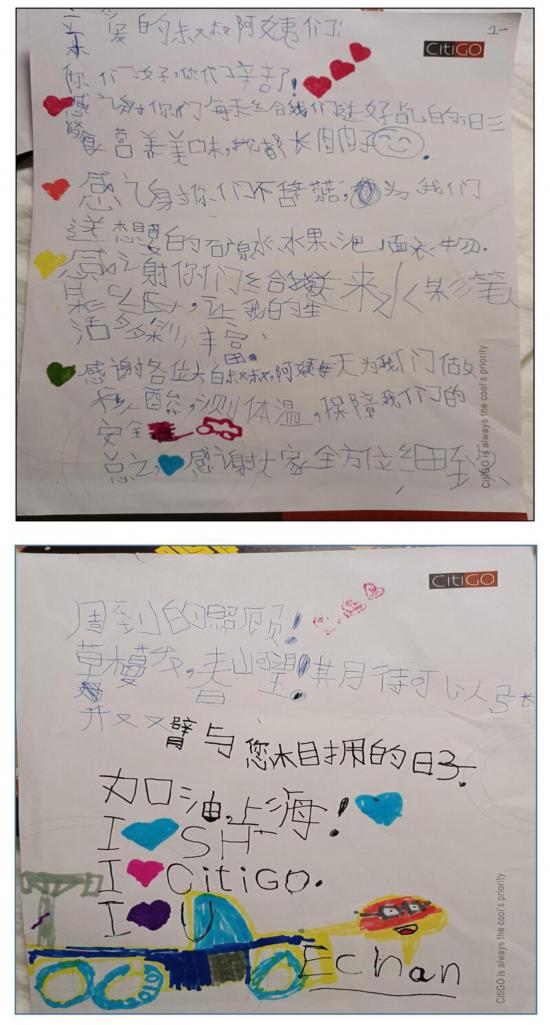 亲爱的叔叔阿姨们:
1-
CitiGO
你们好,你们辛苦了!
感谢你们每天给我们送好吃的日三
餐营养美味,我都长肉肉了
感谢你们不辞辛苦,为我们
送想要的矿泉水、水果、泡面、衣物.
感谢你们给我送来水彩笔
让我的生
活多彩丰富.
感谢各位大白叔叔,阿姨每天为我们做
核酸,测体温,保障我们的
安全
总之,感谢大家全方位细致
CitiGO is always the cool's priority
CitiGO
周到的照顾!
草蔓发,春山可望!期待可以
张开双臂与您相拥的日子.
加油,上海!
I SH
I CitiGO.
I U
Echan
CitiGO is always the cool's priority